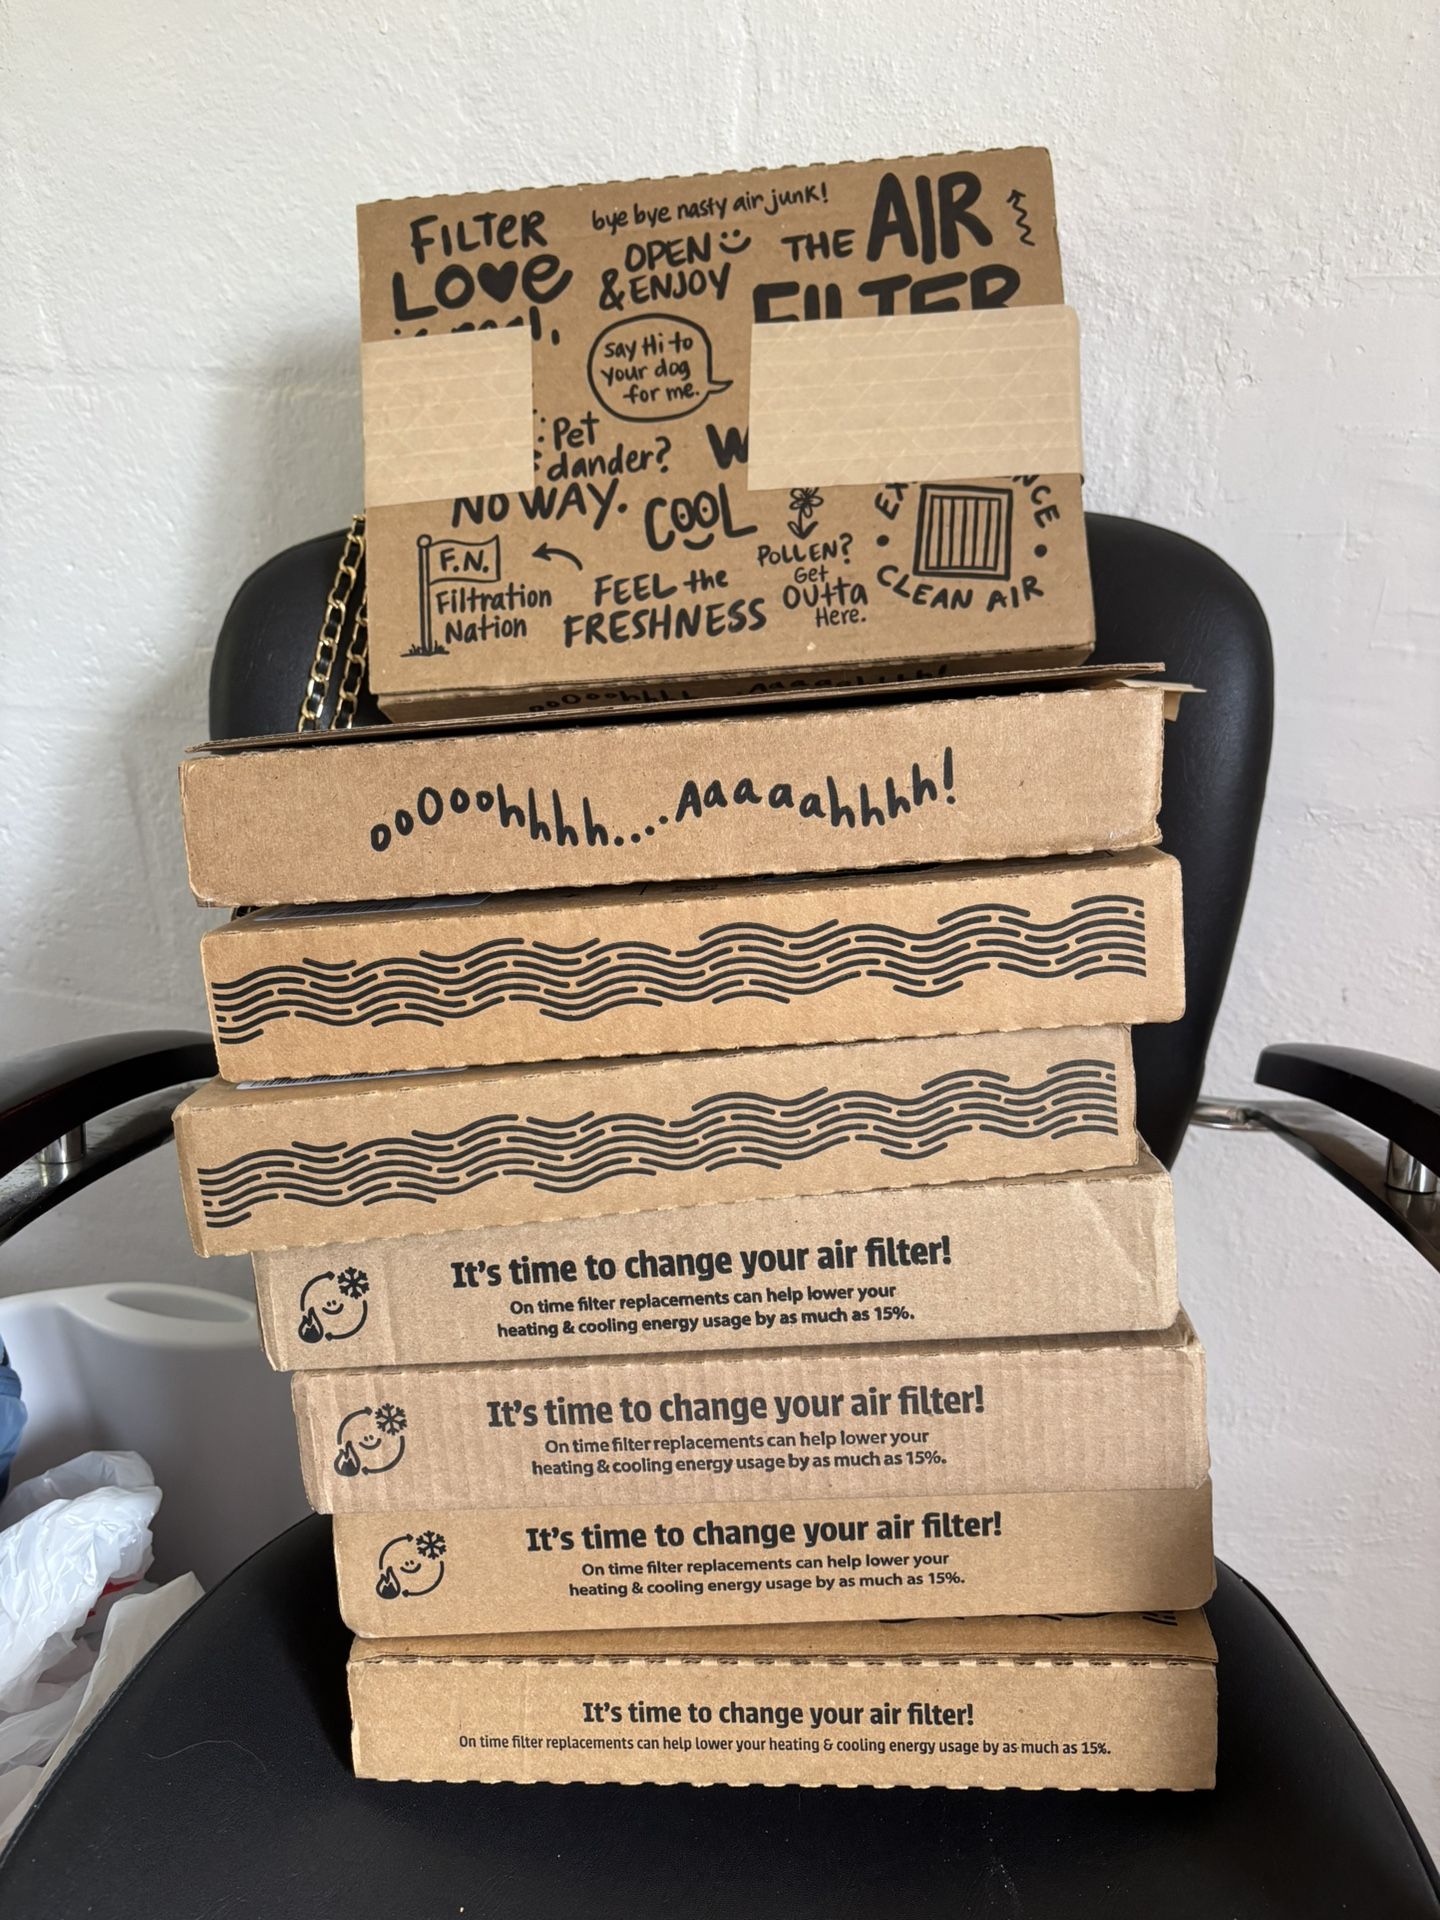 FILTER
LOVE
bye bye nasty air junk!
OPEN
& ENJOY
THE AIR
FILTER
say Hi to
your dog
for me.
Pet
dander?
NO WAY.
COOL
F.N.
Filtration
Nation
FEEL the
FRESHNESS
POLLEN?
Get
OUtta
Here.
CLEAN AIR
ooOoohhhh....Aaaaahhhh!
ooOoohhhh....Aaaaahhhh!
It's time to change your air filter!
On time filter replacements can help lower your
heating & cooling energy usage by as much as 15%.
It's time to change your air filter!
On time filter replacements can help lower your
heating & cooling energy usage by as much as 15%.
It's time to change your air filter!
On time filter replacements can help lower your
heating & cooling energy usage by as much as 15%.
It's time to change your air filter!
On time filter replacements can help lower your heating & cooling energy usage by as much as 15%.